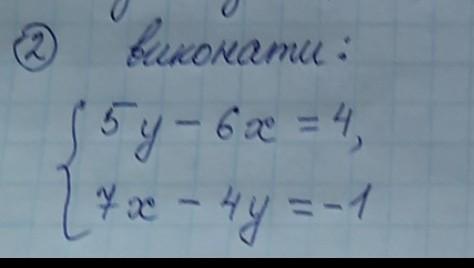 ② виконати:
5y - 6x = 4,
7x - 4y = -1